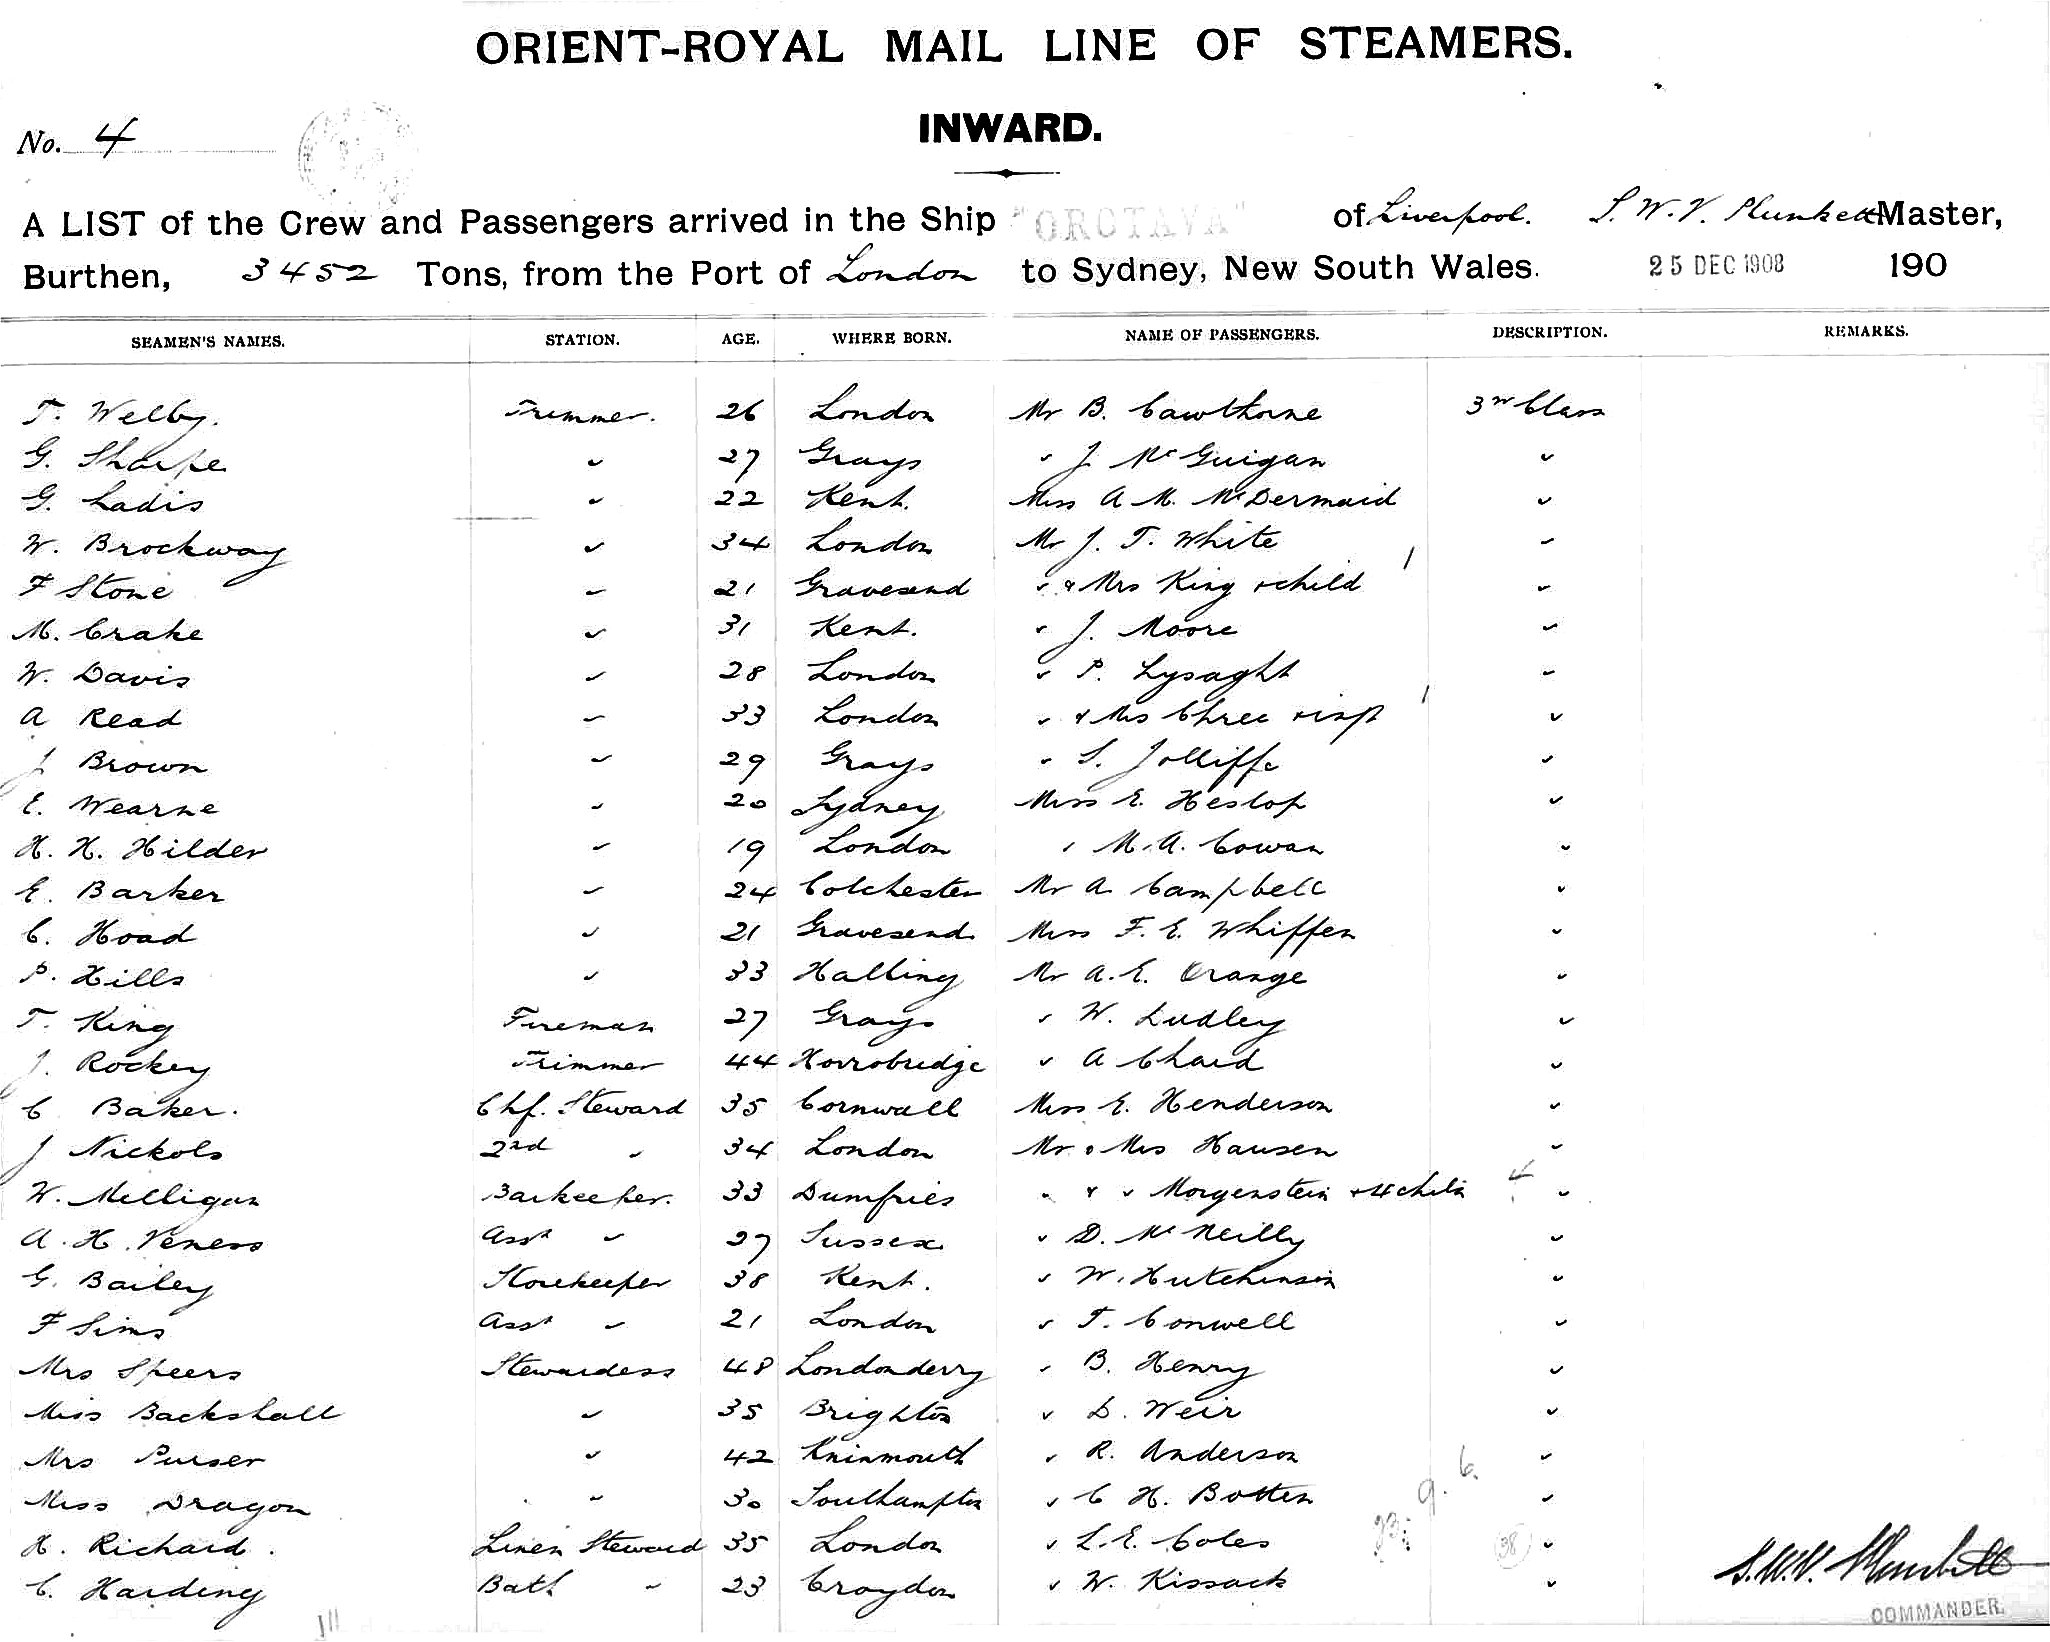 ORIENT-ROYAL MAIL LINE OF STEAMERS.
INWARD.
No. 4
A LIST of the Crew and Passengers arrived in the Ship "OROTAVA" of Liverpool. S. W. V. Plunkett Master,
Burthen, 3452 Tons, from the Port of London to Sydney, New South Wales. 25 DEC 1908 190
SEAMEN'S NAMES. STATION. AGE. WHERE BORN. NAME OF PASSENGERS. DESCRIPTION. REMARKS.
T. Welby. Trimmer. 26 London Mr B. Cawthorne 3rd Class
G. Sharpe " 27 Grays " J McGuigan "
G. Ladis " 22 Kent. Miss A M. McDermaid "
W. Brockway " 34 London Mr J. T. White "
F Stone " 21 Gravesend " & Mrs King & child 1 "
M. Crake " 31 Kent. " J. Moore "
W. Davis " 28 London " P. Lysaght "
A Read " 33 London " & Mrs Chree & inft 1 "
J Brown " 29 Grays " S. Jolliffe "
E. Wearne " 20 Sydney Miss E. Heslop "
H. H. Hilder " 19 London " M. A. Cowan "
E. Barker " 24 Colchester Mr A Campbell "
C. Hoad " 21 Gravesend Miss F. E. Whiffen "
P. Hills " 33 Halling Mr A. E. Orange "
T. King Fireman 27 Grays " W. Ludley "
J. Rockey Trimmer 44 Horrobridge " A Chard "
C Baker. Chf. Steward 35 Cornwall Miss E. Henderson "
J Nickols 2nd " 34 London Mr & Mrs Hausen "
W. Milligan Barkeeper. 33 Dumfries " & " Morgenstein & 4 child 4 "
A. H. Veness Asst " 27 Sussex " D. McNeilly "
G. Bailey Storekeeper 38 Kent. " W. Hutchinson "
F Sims Asst " 21 London " T. Conwell "
Mrs Speers Stewardess 48 Londonderry " B. Henry "
Miss Backshall " 35 Brighton " D. Weir "
Mrs Purser " 42 " R. Anderson "
Miss Dragon " 30 Southampton " C H. Botten "
H. Richard. Linen Steward 35 London " L. E. Coles "
C. Harding Bath " 23 Croydon " W. Kissack "
9. 6.
38
S.W.V. Plunkett
COMMANDER.